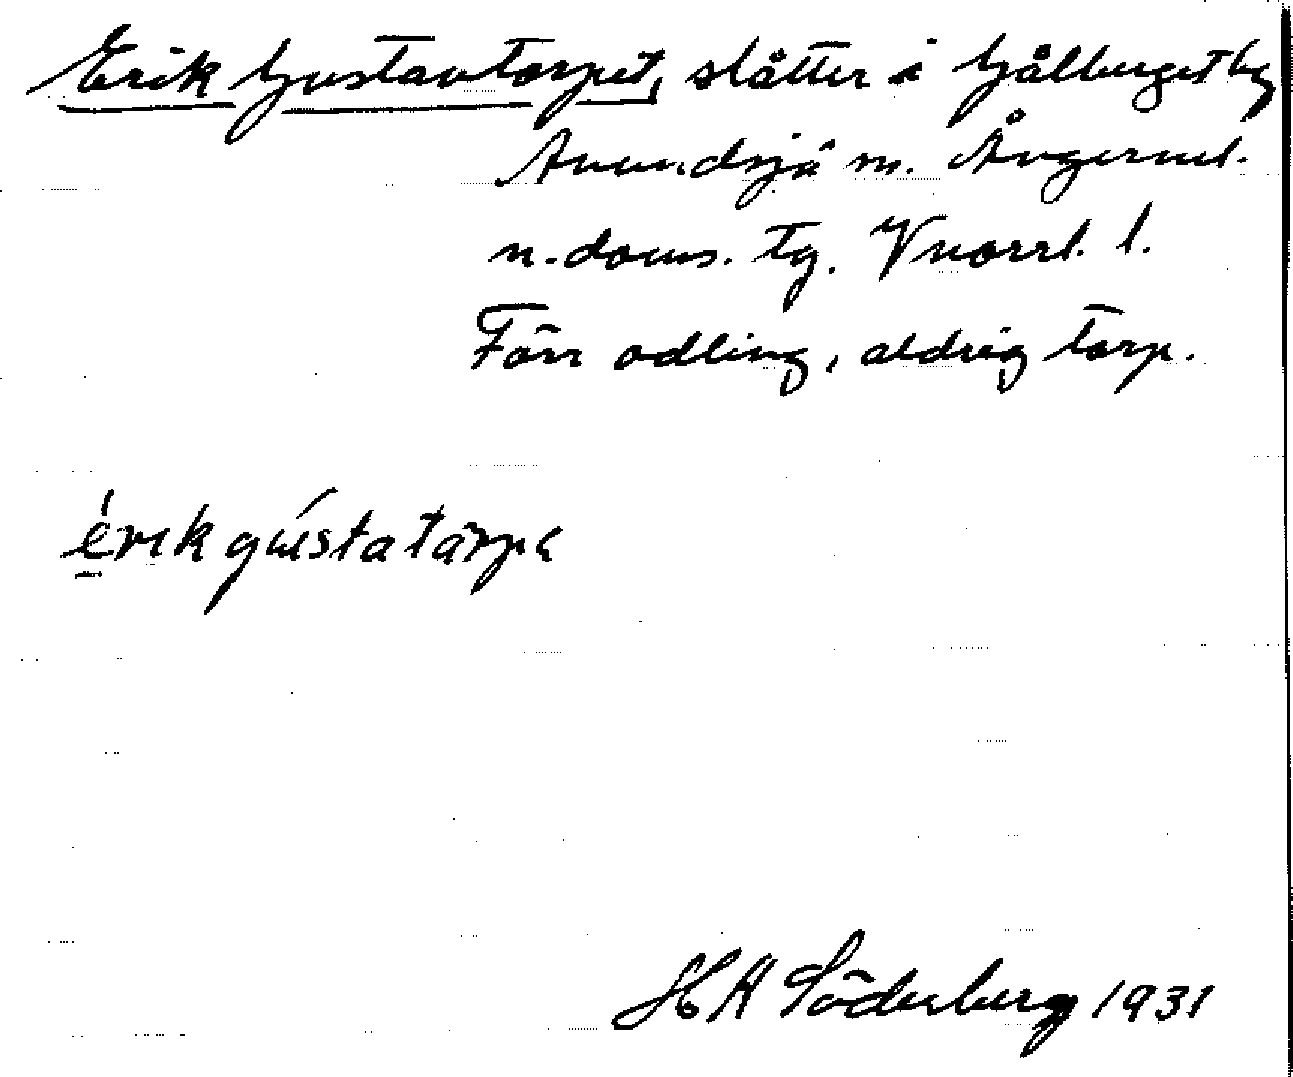 Erik Gustavtorpet, slåtter i Gålberget by
Anundsjö sn. Ångerml.
n. doms. tg. Vnorrl. l.
Förr odling, aldrig torp.
érikgústatárpa
H A Söderberg 1931